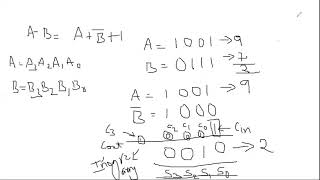 A-B = A+B̅+1
A=A₃A₂A₁A₀
B=B₃B₂B₁B₀
A = 1 0 0 1 → 9
B = 0 1 1 1 → 7
2
A = 1 0 0 1 → 9
B̅ = 1 0 0 0
C₃ C₂ C₁ C₀ 1 Cin
Cout
0 0 1 0 → 2
S₃ S₂ S₁ S₀